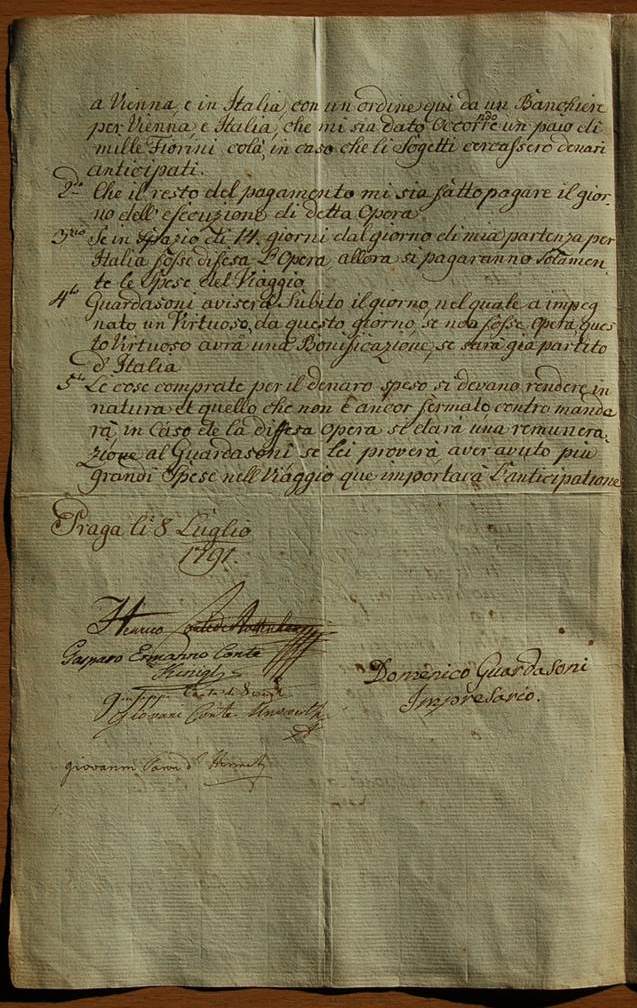 a Vienna, e in Italia, con un ordine qui da un Banchiere
per Vienna, e Italia, che mi sia dato occorrendo un paio di
mille Fiorini colà, in caso che li Sogetti cercassero denari
anticipati.
2do Che il resto del pagamento mi sia fatto pagare il gior-
no dell'esecuzione di detta Opera
3zio Se in spazio di 14. giorni dal giorno di mia partenza per
Italia fosse difesa L'Opera, allora si pagaranno solamen-
te le spese del Viaggio
4to Guardasoni aviserà Subito il giorno, nel quale a impeg
nato un Virtuoso, da questo giorno, se non fosse Opera, ques
to Virtuoso avrà una Bonificazione, se sarà già partito
d'Italia
5to Le cose comprate per il denaro speso si devano rendere in
natura et quello che non è ancor fermato, contro manda
rà, in Caso de la difesa Opera si darà una remunera-
zione al Guardasoni se Lei proverà aver avuto piu
grandi Spese nell Viaggio que importarà L'anticipatione
Praga li 8 Luglio
1791.
Henrico Conte de Rottenhan
Gasparo Ermanno Conte
Künigl
Giuseppe Conte di
Giovani Conte
Domenico Guardasoni
Impresario.
giovanni